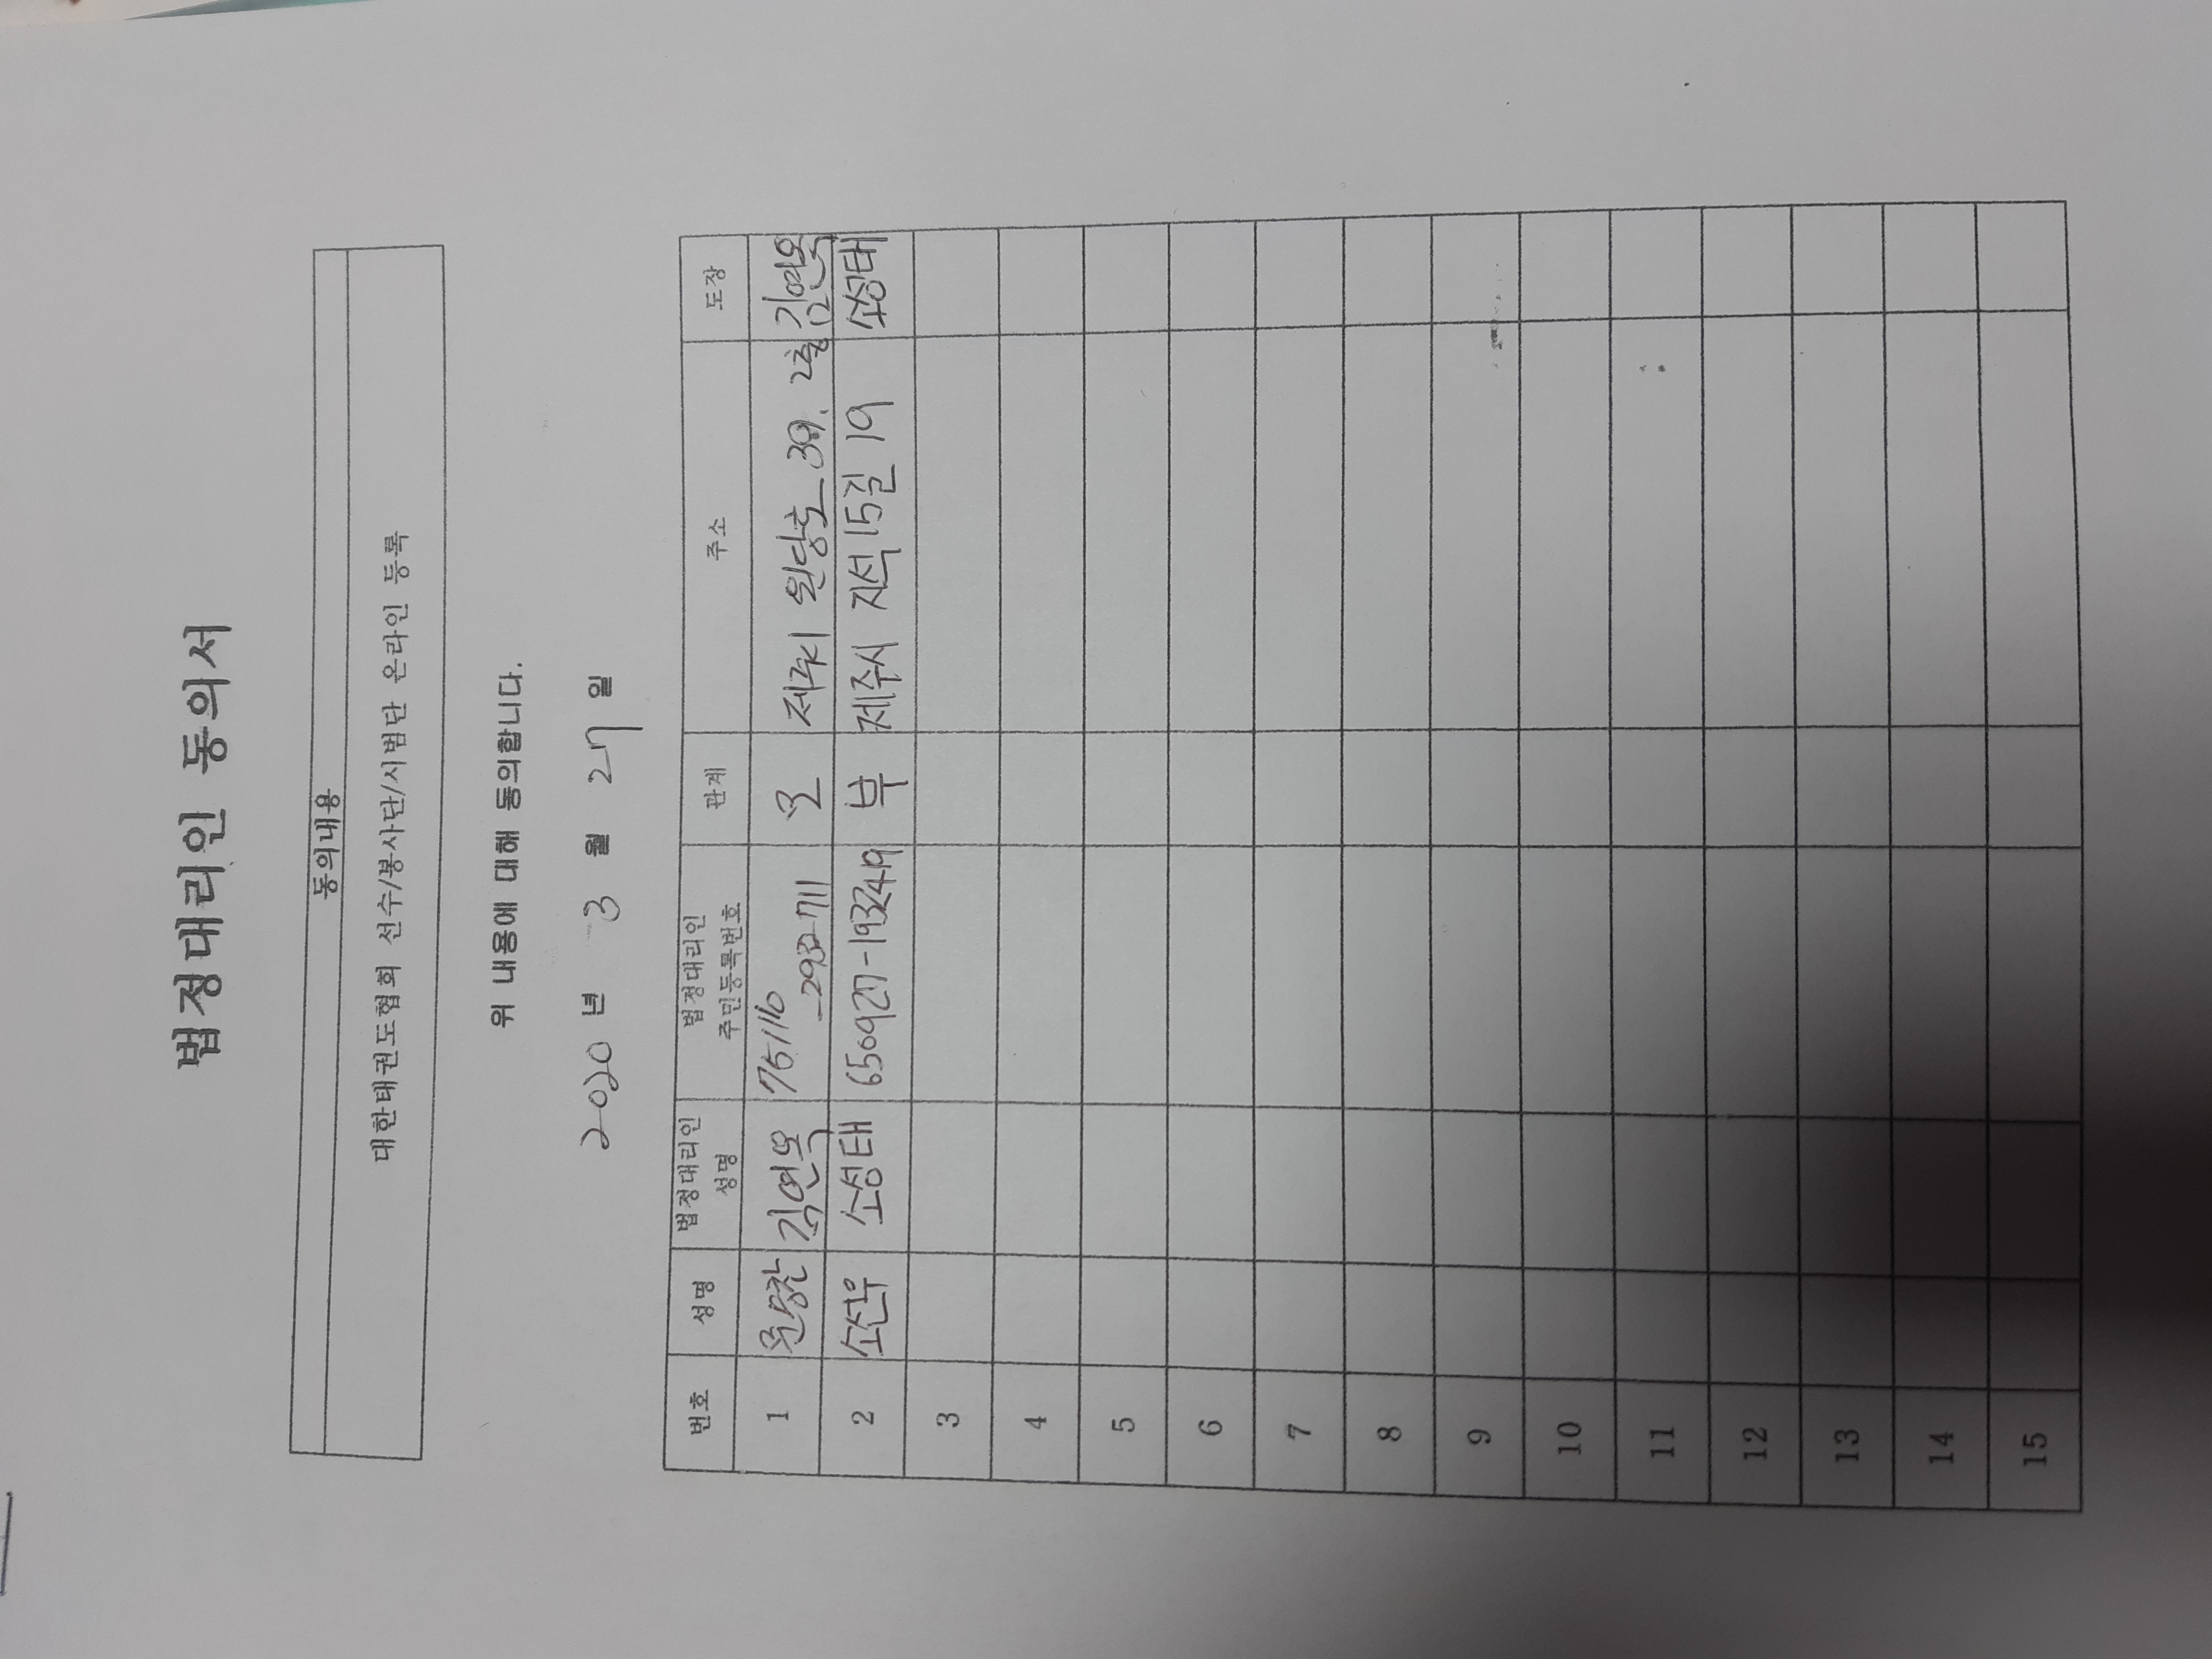 법정대리인 동의서
동의내용
대한태권도협회 선수/봉사단/시범단 온라인 등록
위 내용에 대해 동의합니다.
2020 년 3 월 27 일
번호 성명 법정대리인 성명 법정대리인 주민등록번호 관계 주소 도장
1 김연옥 751116 -2932711 모 제주시 원당로 39. 2층 김연옥
2 소선우 소성태 650927-1932419 부 제주시 지석15길 19 소성태
3
4
5
6
7
8
9
10
11
12
13
14
15